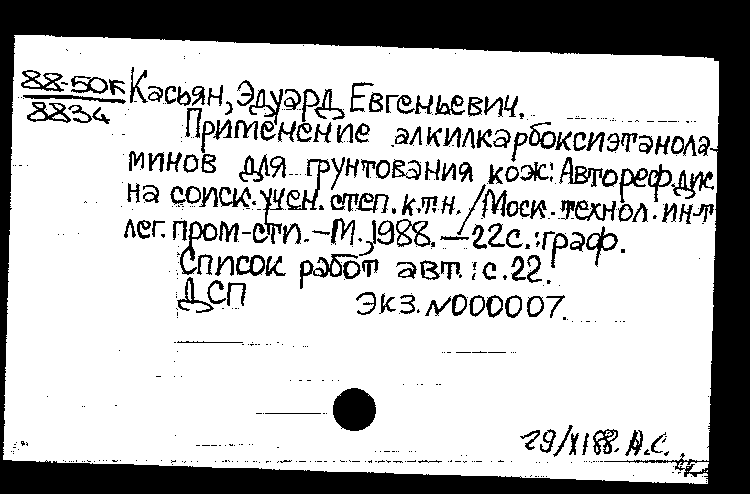 88-50к
8834
Касьян, Эдуард Евгеньевич.
Применение алкилкарбоксиэтанола-
минов для грунтования кож: Автореф.дис.
на соиск. учен. степ. к.т.н. / Моск. технол. ин-т
лег. пром-сти. - М., 1988. - 22с.: граф.
Список работ авт.: с. 22.
ДСП экз. N000007.
29/XI 88. А.С.